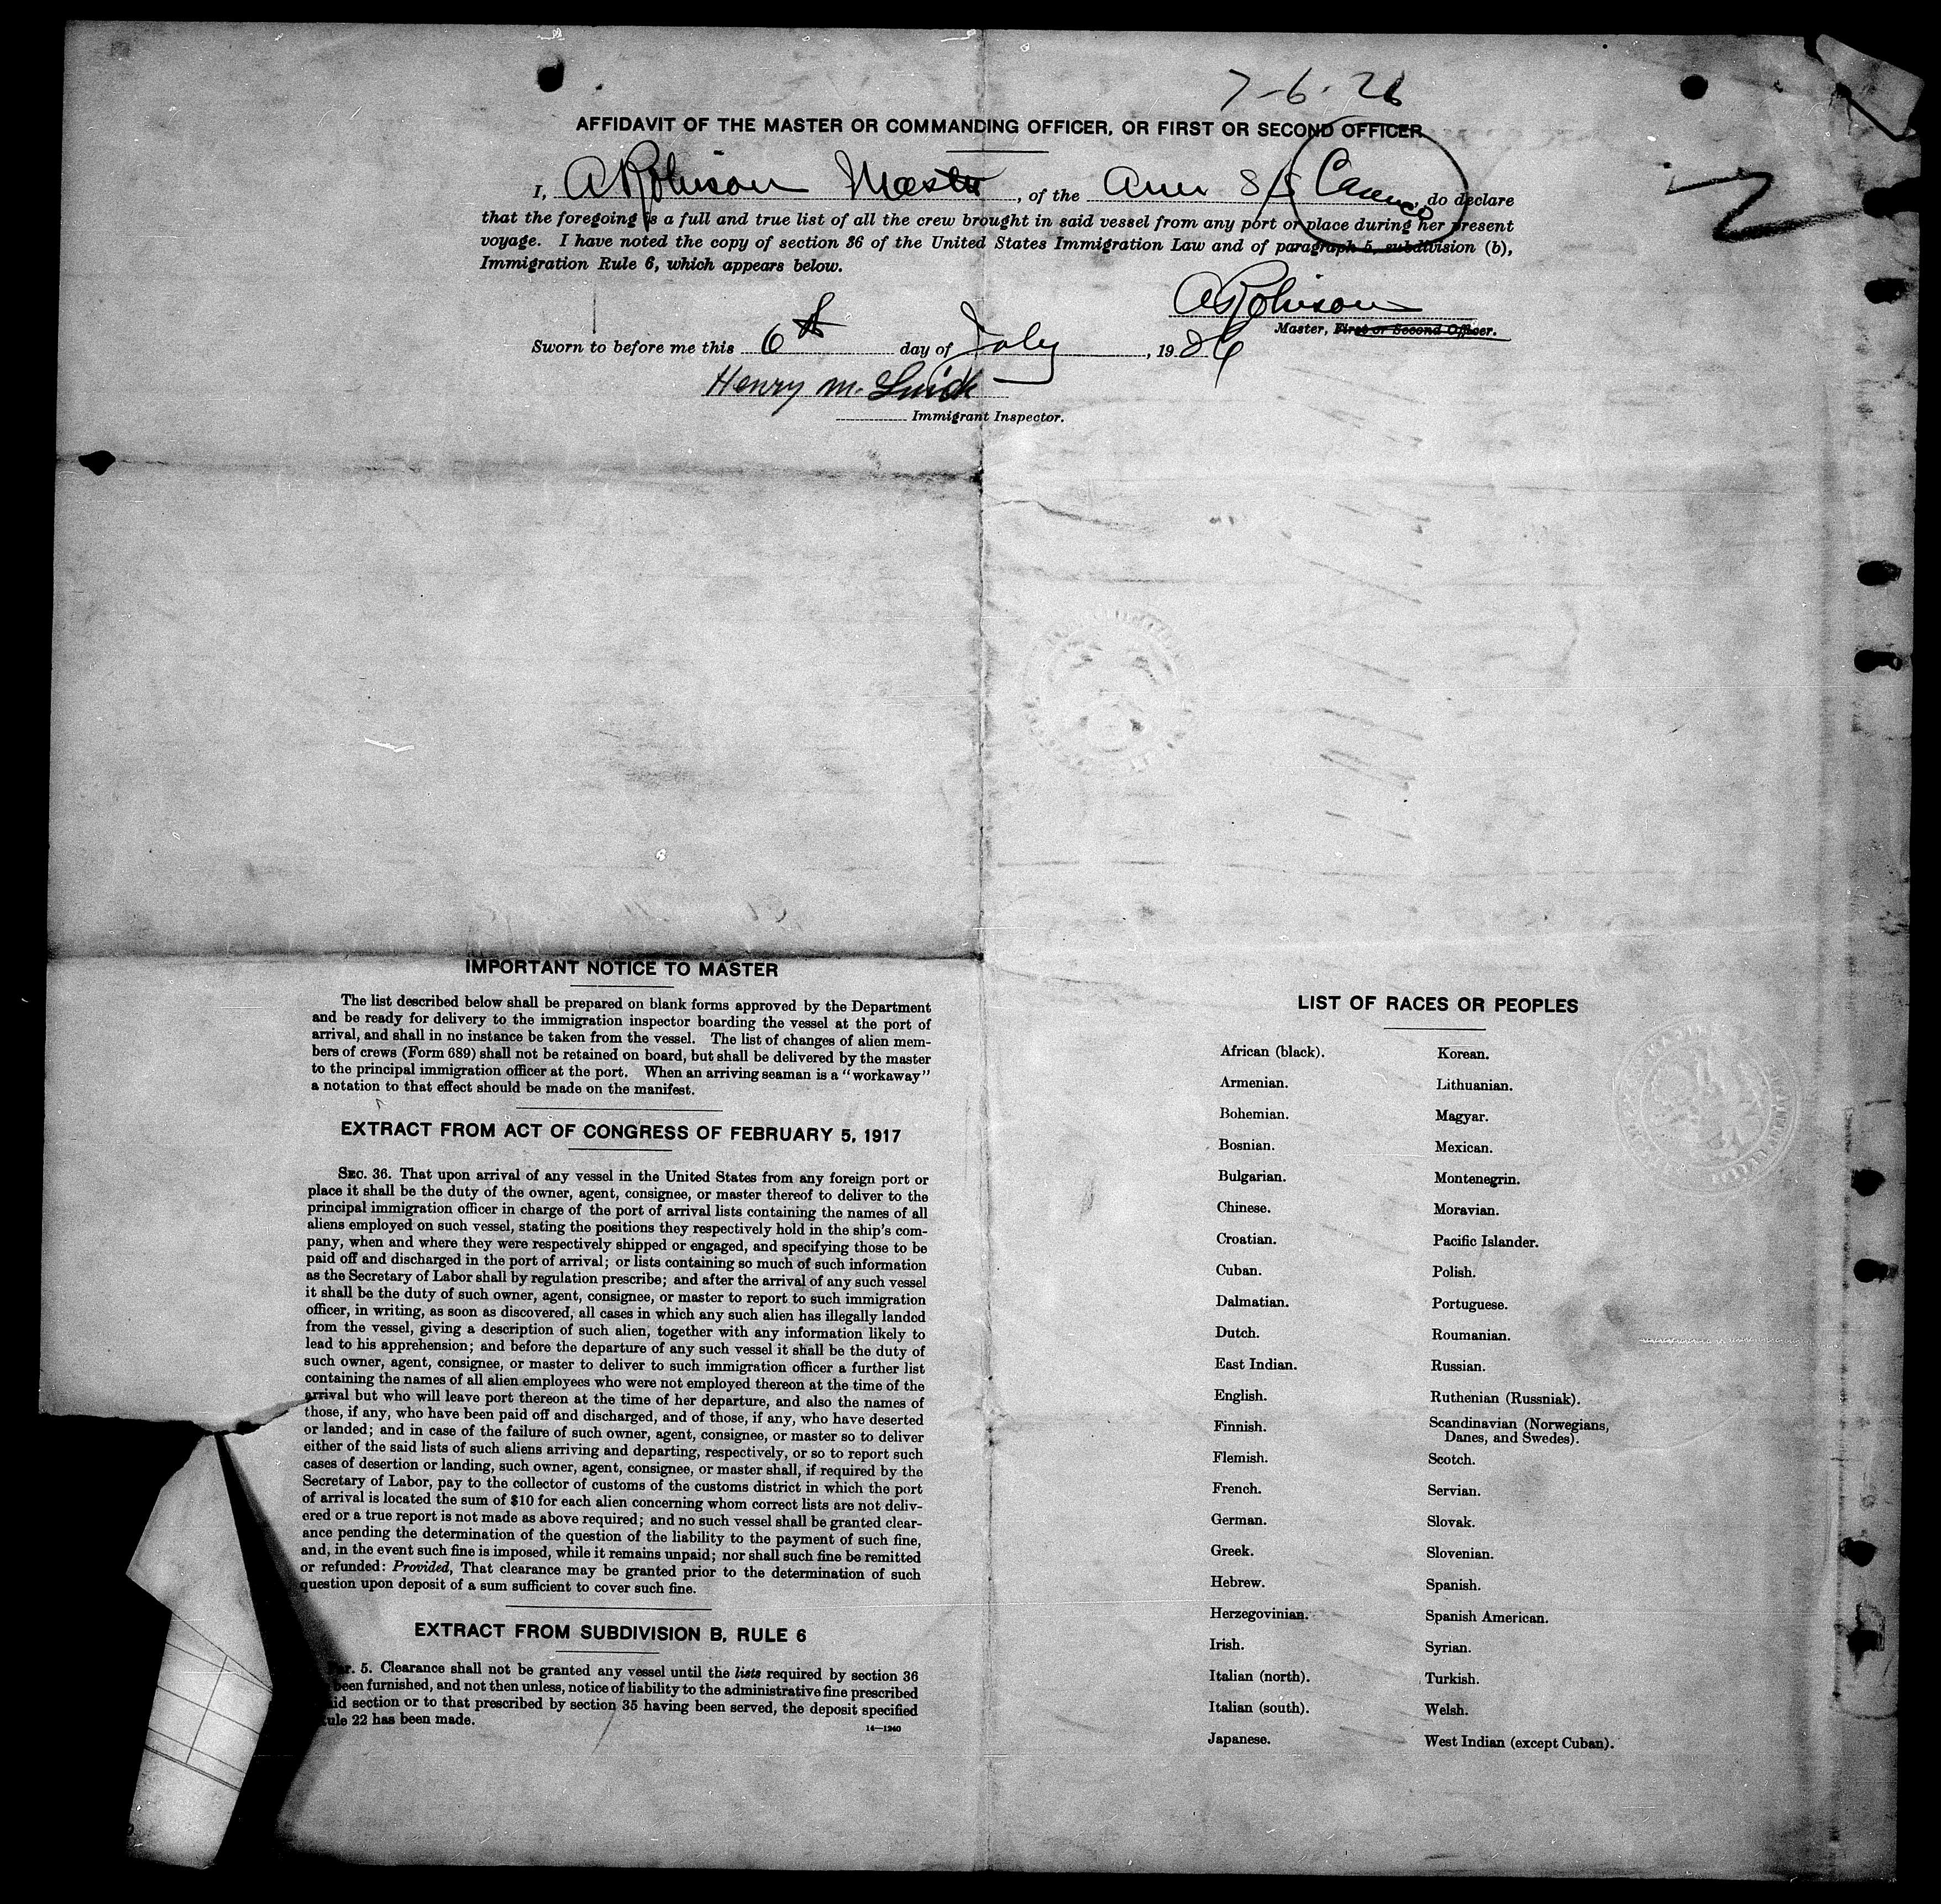 7-6-26
AFFIDAVIT OF THE MASTER OR COMMANDING OFFICER, OR FIRST OR SECOND OFFICER
I, A Robinson Master, of the Amer S/S do declare
that the foregoing is a full and true list of all the crew brought in said vessel from any port or place during her present
voyage. I have noted the copy of section 36 of the United States Immigration Law and of paragraph 5, subdivision (b),
Immigration Rule 6, which appears below.
A Robinson
Master, First or Second Officer.
Sworn to before me this 6th day of July, 1926
Henry M.
Immigrant Inspector.
IMPORTANT NOTICE TO MASTER
The list described below shall be prepared on blank forms approved by the Department
and be ready for delivery to the immigration inspector boarding the vessel at the port of
arrival, and shall in no instance be taken from the vessel. The list of changes of alien mem-
bers of crews (Form 689) shall not be retained on board, but shall be delivered by the master
to the principal immigration officer at the port. When an arriving seaman is a "workaway"
a notation to that effect should be made on the manifest.
EXTRACT FROM ACT OF CONGRESS OF FEBRUARY 5, 1917
SEC. 36. That upon arrival of any vessel in the United States from any foreign port or
place it shall be the duty of the owner, agent, consignee, or master thereof to deliver to the
principal immigration officer in charge of the port of arrival lists containing the names of all
aliens employed on such vessel, stating the positions they respectively hold in the ship's com-
pany, when and where they were respectively shipped or engaged, and specifying those to be
paid off and discharged in the port of arrival; or lists containing so much of such information
as the Secretary of Labor shall by regulation prescribe; and after the arrival of any such vessel
it shall be the duty of such owner, agent, consignee, or master to report to such immigration
officer, in writing, as soon as discovered, all cases in which any such alien has illegally landed
from the vessel, giving a description of such alien, together with any information likely to
lead to his apprehension; and before the departure of any such vessel it shall be the duty of
such owner, agent, consignee, or master to deliver to such immigration officer a further list
containing the names of all alien employees who were not employed thereon at the time of the
arrival but who will leave port thereon at the time of her departure, and also the names of
those, if any, who have been paid off and discharged, and of those, if any, who have deserted
or landed; and in case of the failure of such owner, agent, consignee, or master so to deliver
either of the said lists of such aliens arriving and departing, respectively, or so to report such
cases of desertion or landing, such owner, agent, consignee, or master shall, if required by the
Secretary of Labor, pay to the collector of customs of the customs district in which the port
of arrival is located the sum of $10 for each alien concerning whom correct lists are not deliv-
ered or a true report is not made as above required; and no such vessel shall be granted clear-
ance pending the determination of the question of the liability to the payment of such fine,
and, in the event such fine is imposed, while it remains unpaid; nor shall such fine be remitted
or refunded: Provided, That clearance may be granted prior to the determination of such
question upon deposit of a sum sufficient to cover such fine.
EXTRACT FROM SUBDIVISION B, RULE 6
5. Clearance shall not be granted any vessel until the lists required by section 36
been furnished, and not then unless, notice of liability to the administrative fine prescribed
section or to that prescribed by section 35 having been served, the deposit specified
22 has been made.
14—1240
LIST OF RACES OR PEOPLES
African (black).
Armenian.
Bohemian.
Bosnian.
Bulgarian.
Chinese.
Croatian.
Cuban.
Dalmatian.
Dutch.
East Indian.
English.
Finnish.
Flemish.
French.
German.
Greek.
Hebrew.
Herzegovinian.
Irish.
Italian (north).
Italian (south).
Japanese.
Korean.
Lithuanian.
Magyar.
Mexican.
Montenegrin.
Moravian.
Pacific Islander.
Polish.
Portuguese.
Roumanian.
Russian.
Ruthenian (Russniak).
Scandinavian (Norwegians,
Danes, and Swedes).
Scotch.
Servian.
Slovak.
Slovenian.
Spanish.
Spanish American.
Syrian.
Turkish.
Welsh.
West Indian (except Cuban).